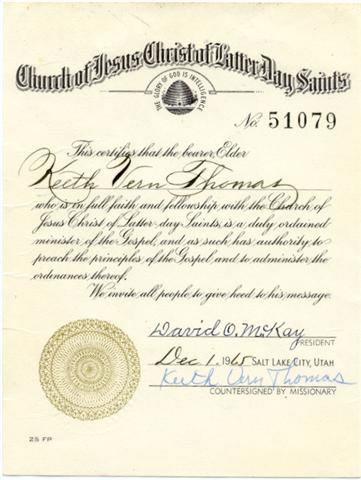 Church of Jesus Christ of Latter Day Saints
THE GLORY OF GOD IS INTELLIGENCE
No. 51079
This certifies that the bearer, Elder
Keith Vern Thomas
who is in full faith and fellowship with the Church of
Jesus Christ of Latter-day Saints, is a duly ordained
minister of the Gospel, and as such has authority to
preach the principles of the Gospel, and to administer the
ordinances thereof.
We invite all people to give heed to his message.
David O. McKay
PRESIDENT
Dec 1, 1965 SALT LAKE CITY, UTAH
Keith Vern Thomas
COUNTERSIGNED BY MISSIONARY
25 FP